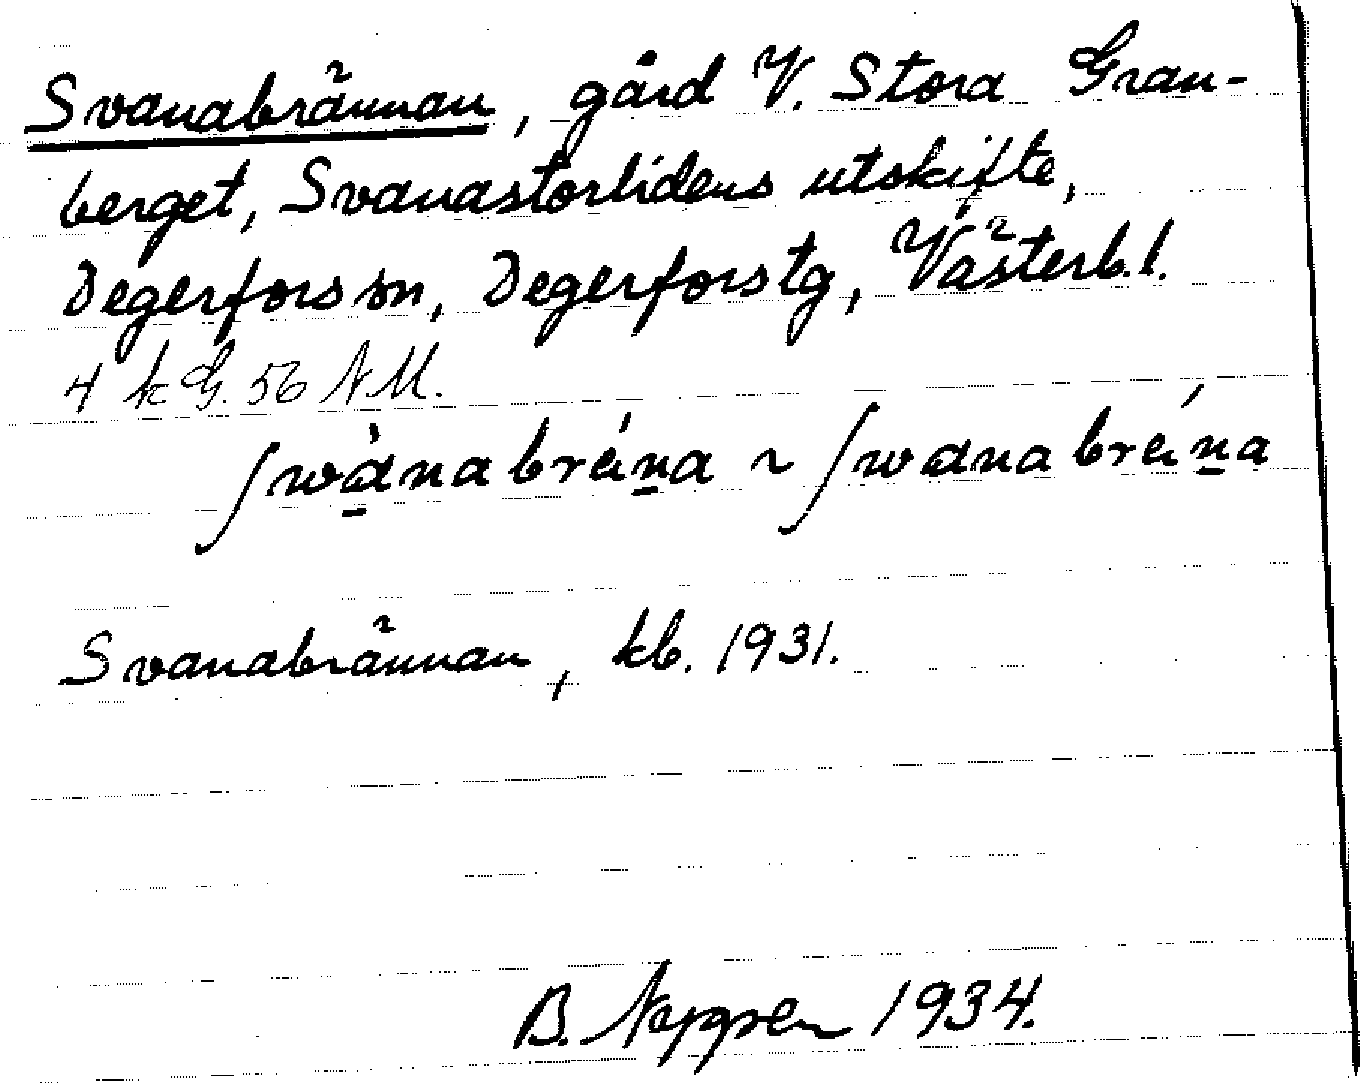 Svanabrännan, gård V. Stora Gran-
berget, Svanastorlidens utskifte,
Degerfors sn, Degerfors tg, Västerb. l.
4 k G. 56 NM.
ʃwànabrǽna ~ ʃwanabrǽna
Svanabrännan, kb. 1931.
B. 1934.